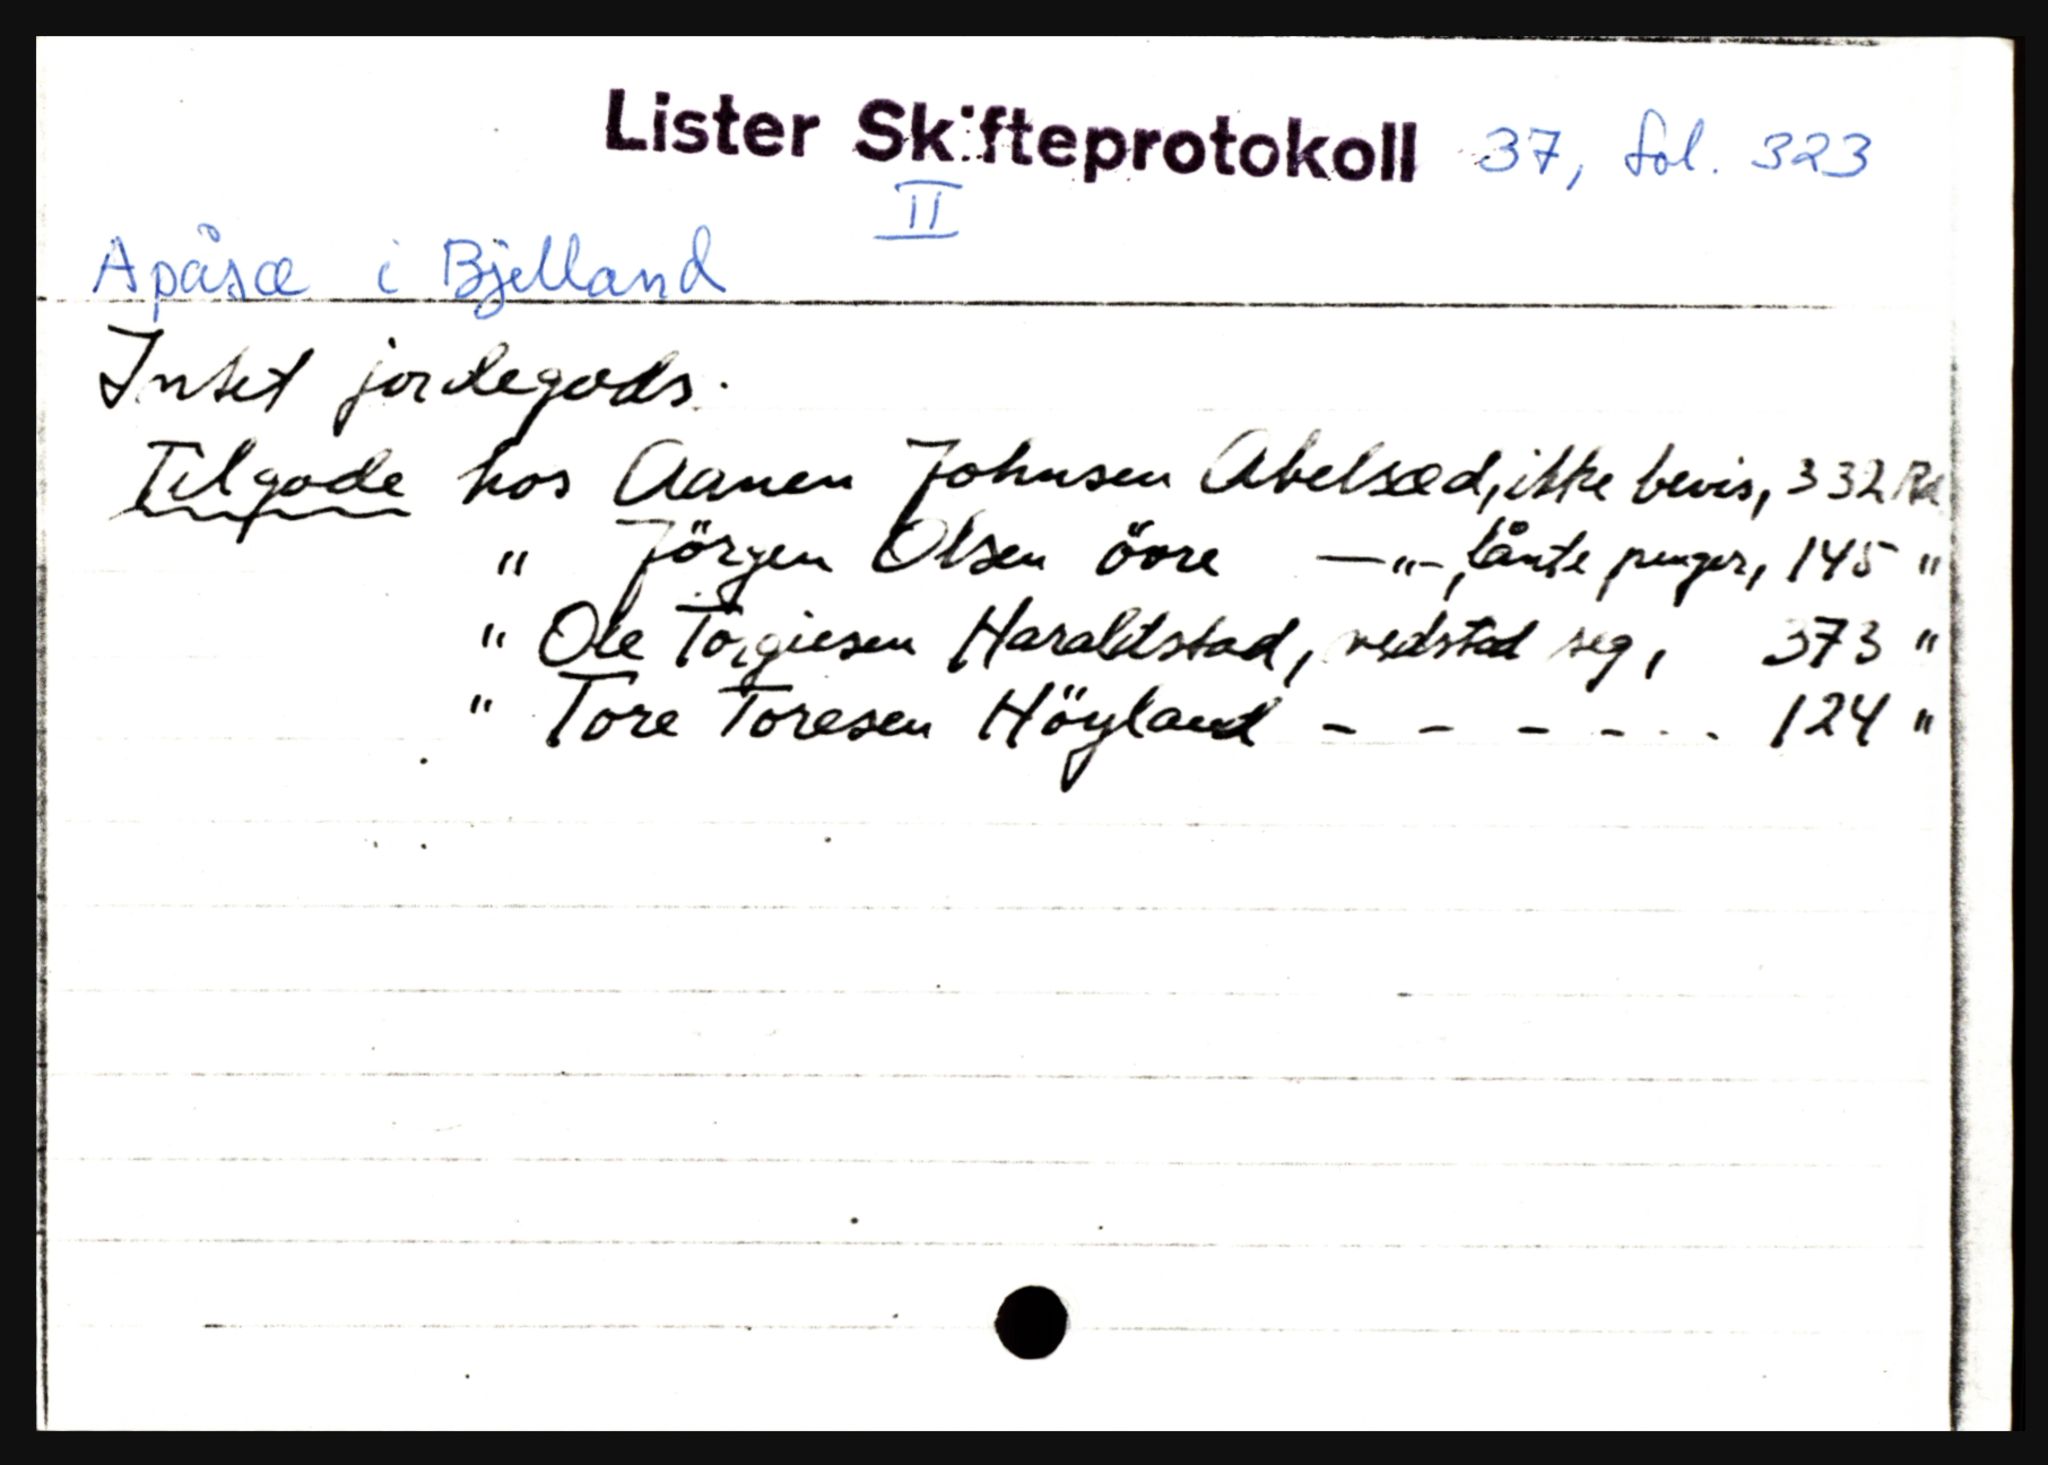 Lister Skifteprotokoll 37, fol. 323
II
Apåsæ i Bjelland
Intet jordegods.
Tilgode hos Aanen Johnsen Abelsæd, ikke bevis, 332 Rd
" Jörgen Olsen övre —"—, lånte penger, 145 "
" Ole Torgiesen Haraldstad, vedstod seg, 373 "
" Tore Toresen Höyland - - - - - . 124 "